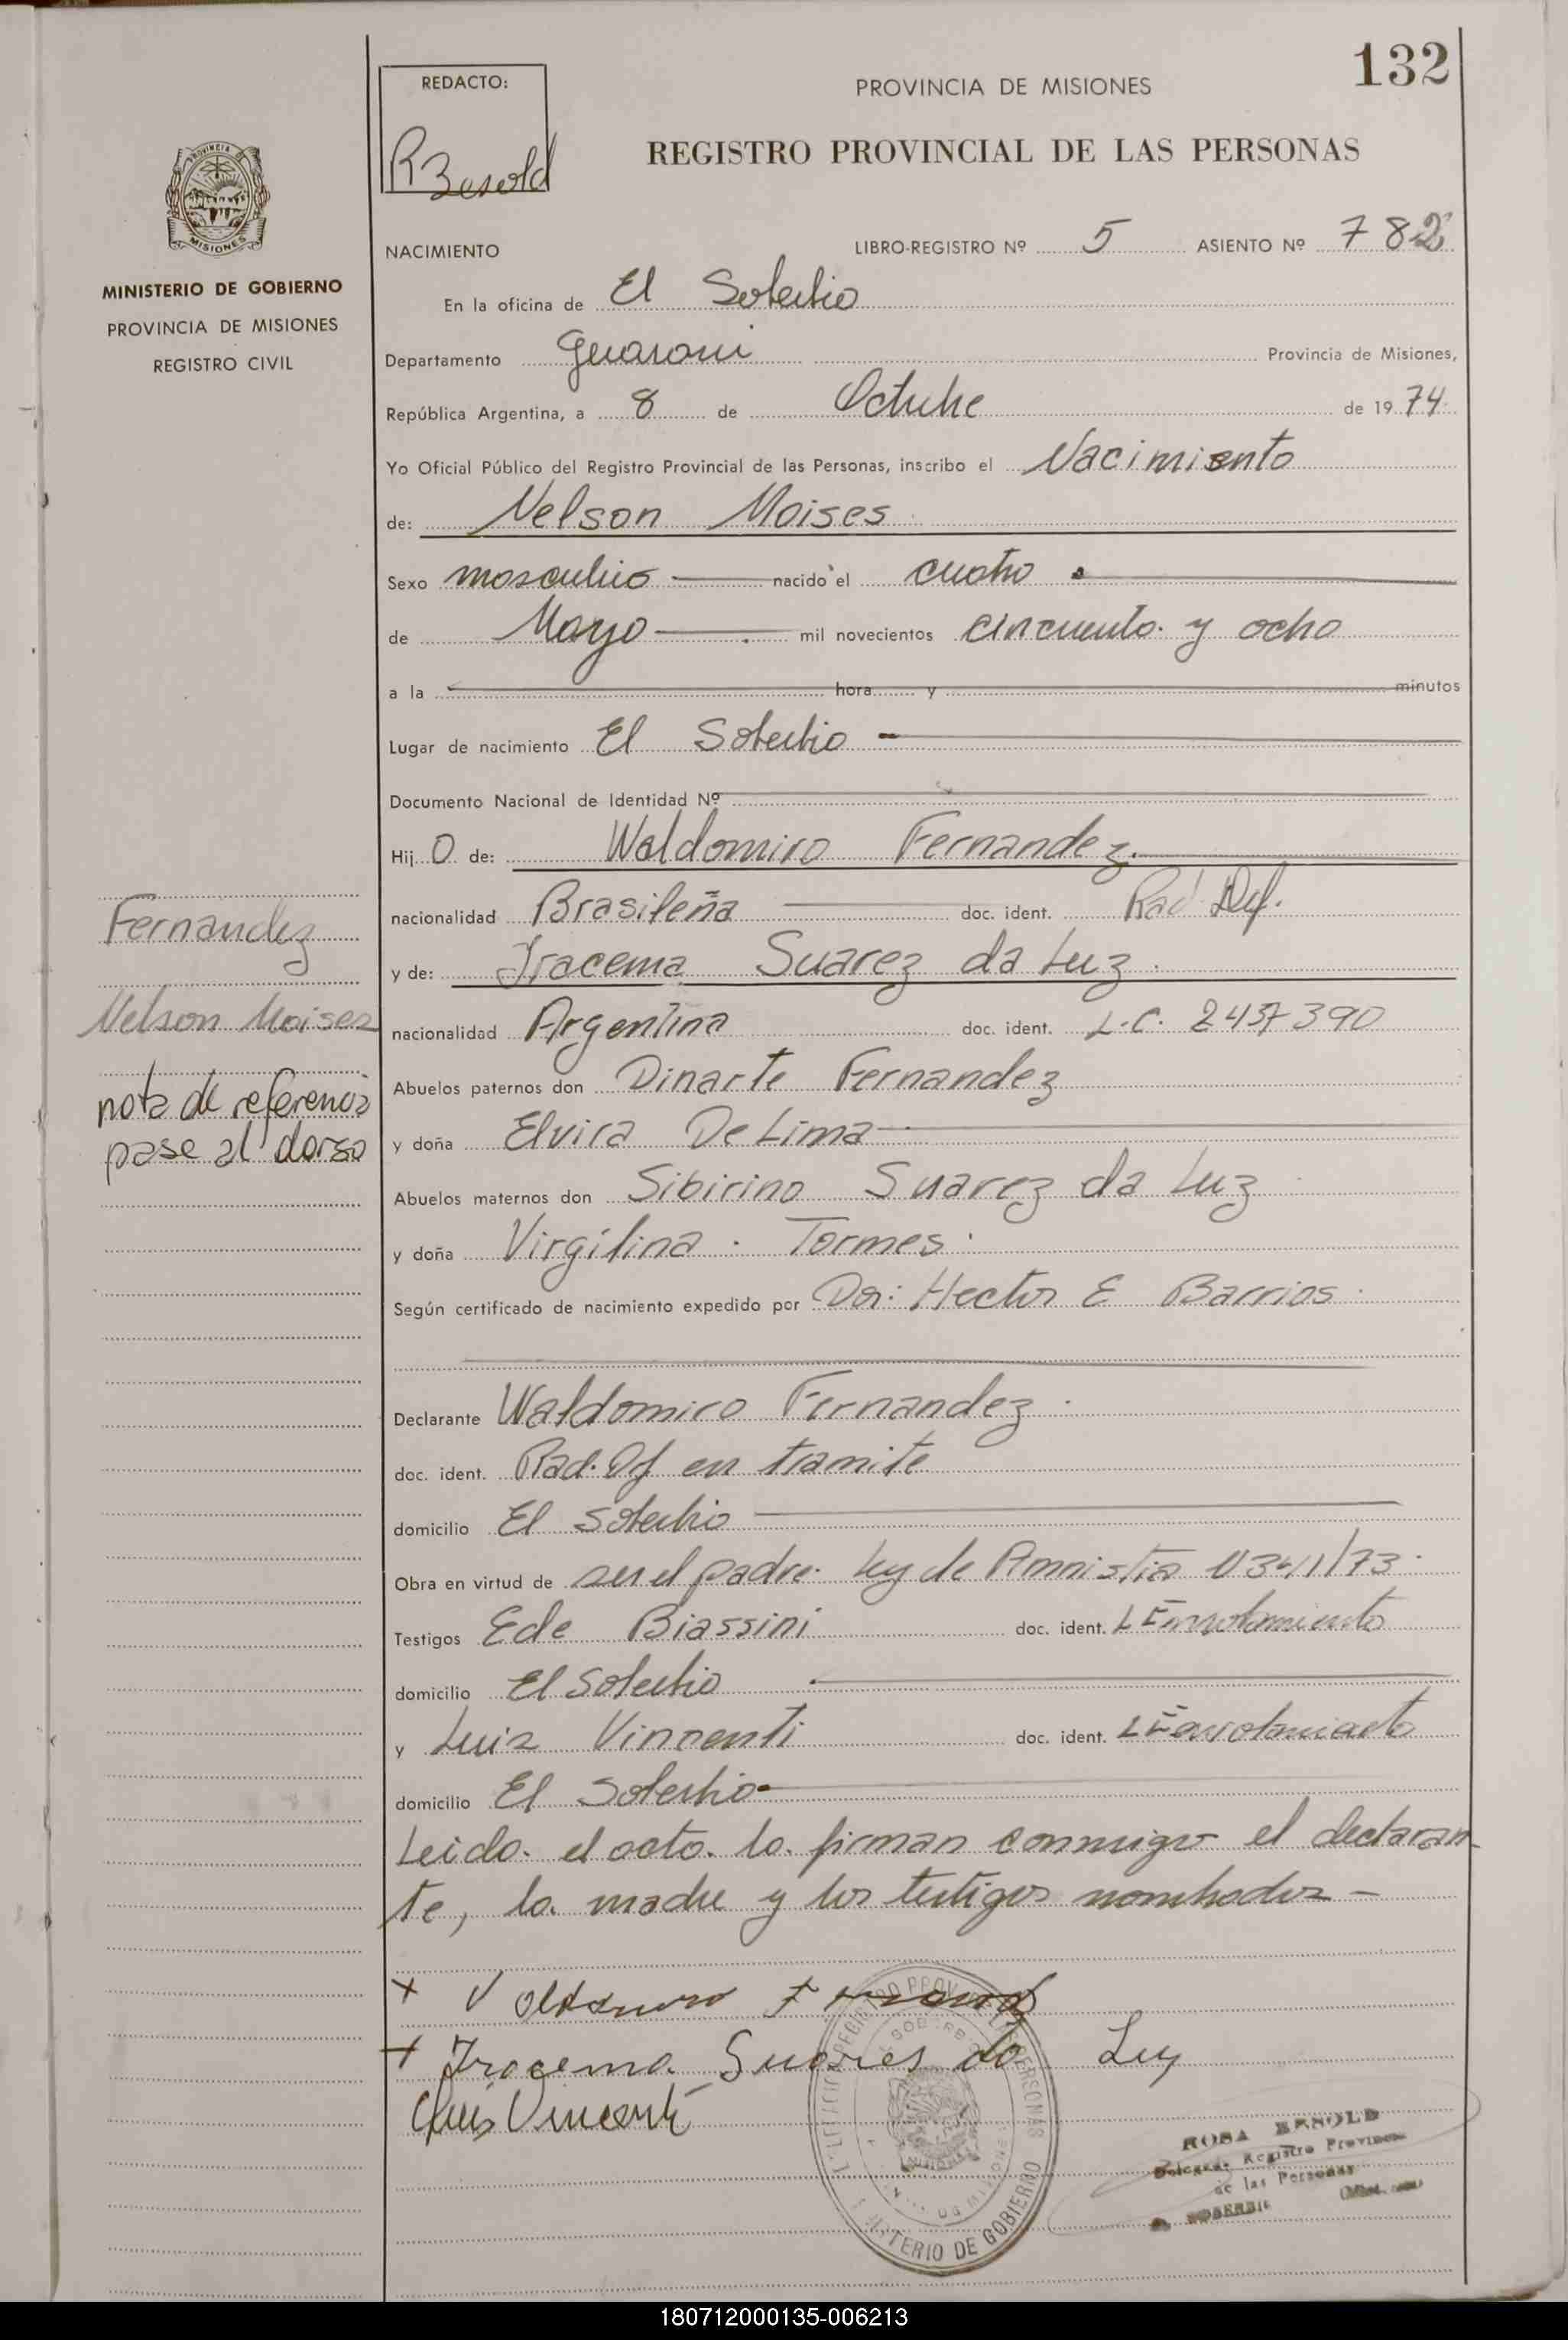 132
REDACTO:
R Besold
PROVINCIA DE MISIONES
REGISTRO PROVINCIAL DE LAS PERSONAS
PROVINCIA
MISIONES
MINISTERIO DE GOBIERNO
PROVINCIA DE MISIONES
REGISTRO CIVIL
NACIMIENTO LIBRO-REGISTRO Nº 5 ASIENTO Nº 782
En la oficina de El Soberbio
Departamento Guarani Provincia de Misiones,
República Argentina, a 8 de Octubre de 1974
Yo Oficial Público del Registro Provincial de las Personas, inscribo el Nacimiento
de: Nelson Moises
Sexo masculino nacido el cuatro
de Mayo mil novecientos cincuenta y ocho
a la hora y minutos
Lugar de nacimiento El Soberbio
Documento Nacional de Identidad Nº
Hijo de: Waldomiro Fernandez
nacionalidad Brasileña doc. ident. Rad Def.
y de: Iracema Suarez da Luz
nacionalidad Argentina doc. ident. L.C. 2437390
Abuelos paternos don Dinarte Fernandez
y doña Elvira De Lima
Abuelos maternos don Sibirino Suarez da Luz
y doña Virgilina Tormes
Según certificado de nacimiento expedido por Dor: Hector E Barrios
Declarante Waldomiro Fernandez
doc. ident. Rad. Df en tramite
domicilio El Soberbio
Obra en virtud de ser el padre. Ley de Amnistia 1341/73
Testigos Ede Biassini doc. ident. L Enrolamiento
domicilio El Soberbio
y Luis Vincenti doc. ident. L Enrolamiento
domicilio El Soberbio
Leido el acto lo firman conmigo el declaran
te, la madre y los testigos nombrados -
Fernandez
Nelson Moises
nota de referencia
pase al dorso
x Voldomiro Fernand
+ Iracema Suares da Luz
Luis Vincenti
REGISTRO PROV. DE LAS PERSONAS
MINISTERIO DE GOBIERNO
ROSA BESOLD
Delegada Registro Provincial
de las Personas
EL SOBERBIO
180712000135-006213